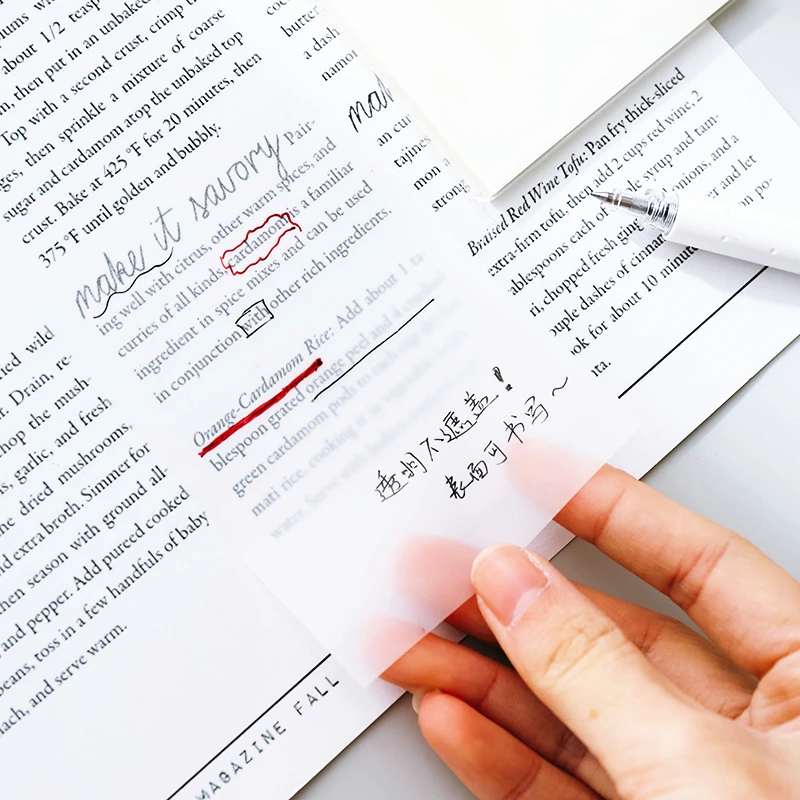 about 1/2 teasp
n, then put in an unbaked
Top with a second crust, crimp th
ges, then sprinkle a mixture of coarse
sugar and cardamom atop the unbaked top
crust. Bake at 425 °F for 20 minutes, then
375 °F until golden and bubbly.
make it savory Pair-
ing well with citrus, other warm spices, and
curries of all kinds, cardamom is a familiar
ingredient in spice mixes and can be used
in conjunction with other rich ingredients.
Orange-Cardamom Rice: Add about 1 ta-
blespoon grated orange peel and 4 crushed
green cardamom pods to
mati rice, cooking it in
water. Serve with
ried wild
r. Drain, re-
hop the mush-
s, garlic, and fresh
he dried mushrooms,
nd extra broth. Simmer for
hen season with ground all-
and pepper. Add pureed cooked
beans, toss in a few handfuls of baby
nach, and serve warm.
MAGAZINE FALL
butter
a dash
namon
mak
an cur
tajines
mon a
strong
Braised Red Wine Tofu: Pan fry thick-sliced
extra-firm tofu, then add 2 cups red wine, 2
ablespoons each of ple syrup and tam-
ri, chopped fresh ging onions, and a
ouple dashes of cinnam er and let
ook for about 10 minute on po-
ta.
透明不遮盖!
表面可书写~